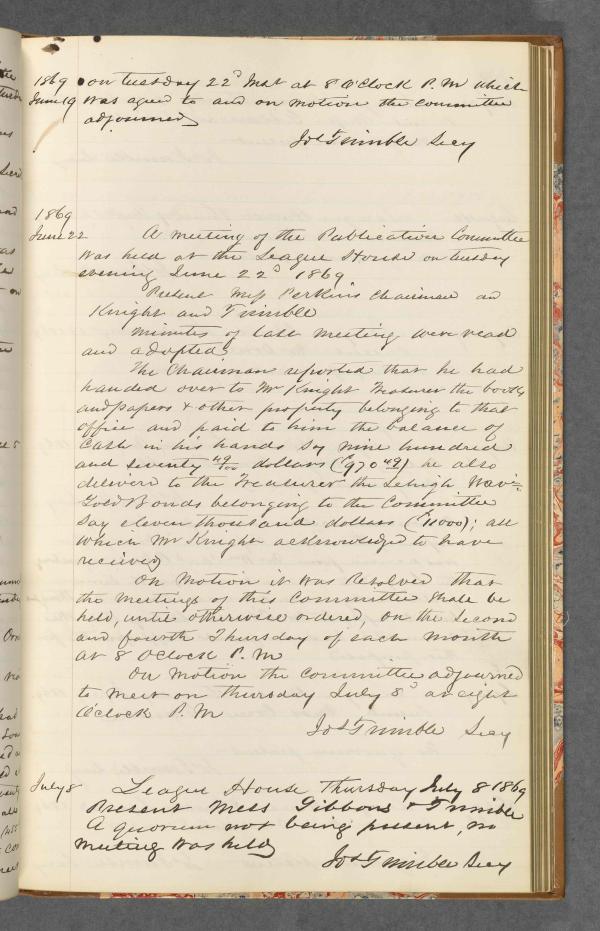 1869 on tuesday 22d Inst at 8 O'Clock P.M which
June 19 was agreed to and on motion the committee
adjourned
Jos Trimble Secy
1869
June 22 A meeting of the Publication Committee
was held at the League House on tuesday
evening June 22d 1869
Present Mess Perkins Chairman
Knight and Trimble
minutes of last meeting were read
and adopted
The Chairman reported that he had
handed over to Mr Knight Treasurer the books
and papers & other property belonging to that
office and paid to him the balance of
Cash in his hands say nine hundred
and seventy 49/100 dollars ($970 49) he also
delivered to the Treasurer the Lehigh Navi=
Gold Bonds belonging to the Committee
say eleven thousand dollars ($11000); all
which Mr Knight acknowledged to have
received
On Motion it was Resolved that
the meetings of this Committee shall be
held, until otherwise ordered, on the second
and fourth Thursday of each month
at 8 OClock P.M
On Motion the Committee adjourned
to meet on Thursday July 8th at eight
O'Clock P.M
Jos Trimble Secy
July 8 League House Thursday July 8 1869
Present Mess Gibbons & Trimble
A quorum not being present, no
meeting was held
Jos Trimble Secy